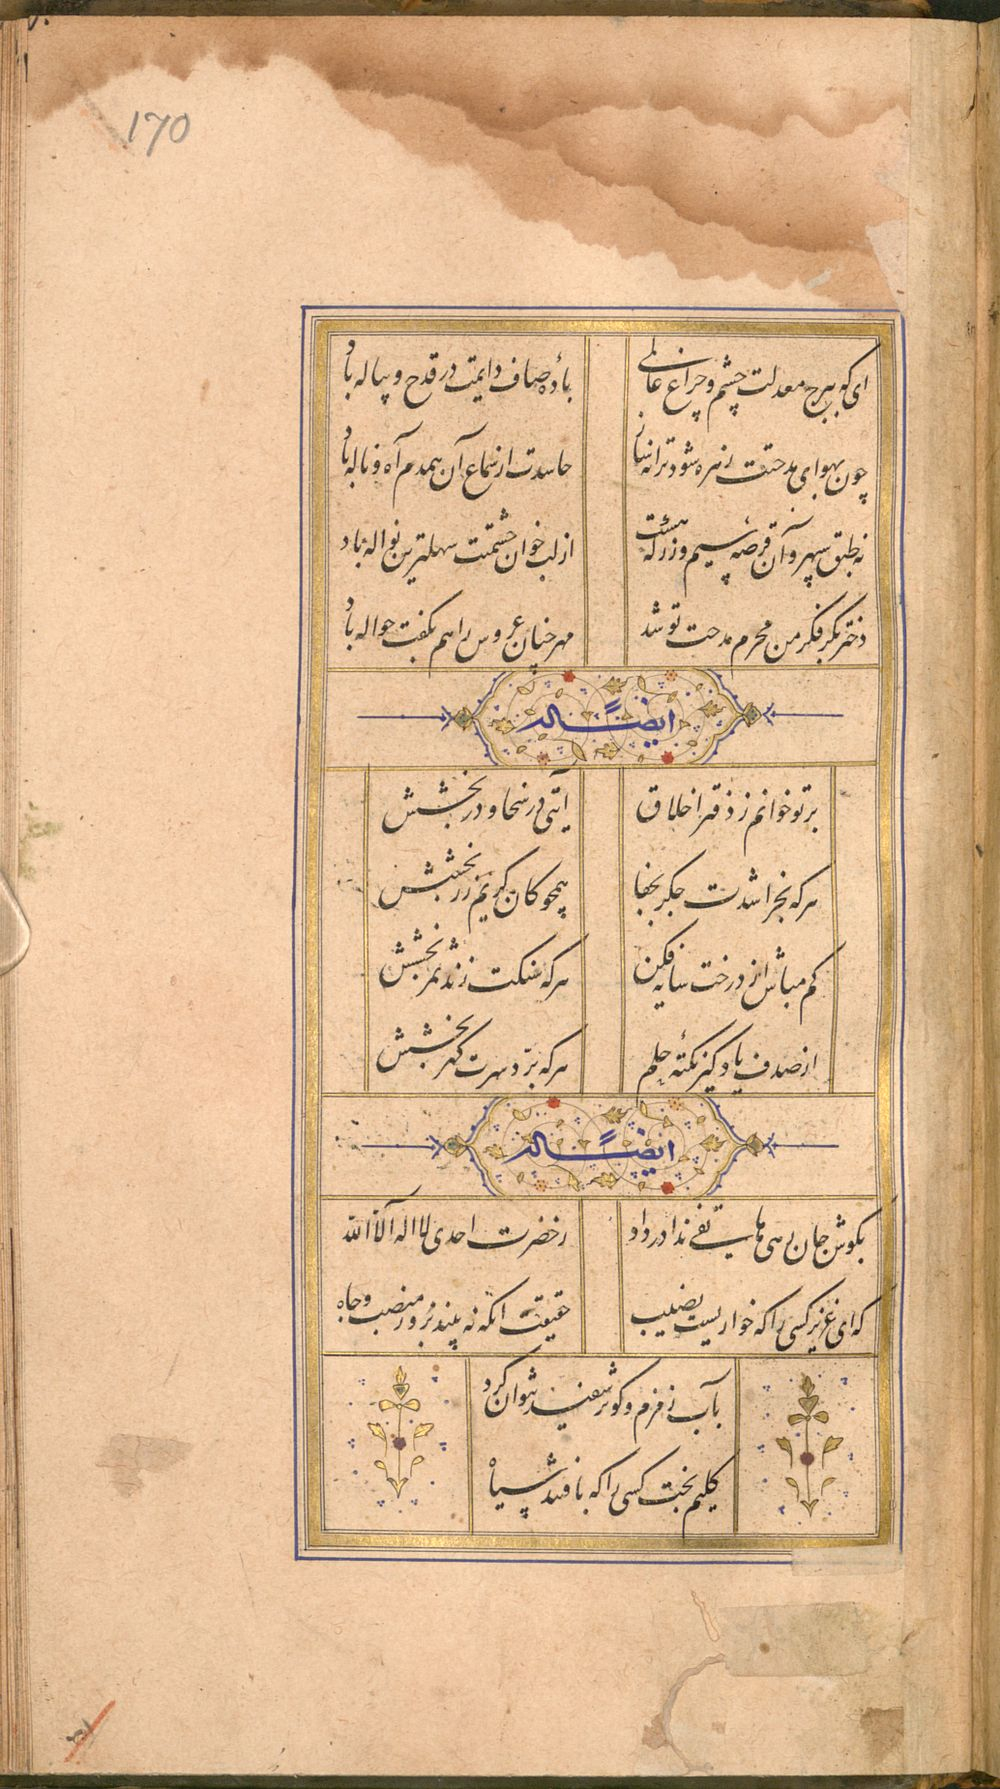 170
ای که ببرج معدلت چشم و چراغ عالمی
بادهٔ صاف دایمت در قدح و پیاله باد
چون بهوای مدحتت زهره شود ترانه ساز
حاسدت از سماع آن همدم آه و ناله باد
نه طبق سپهر و آن قرصهٔ سیم و زر که هست
از لب خوان حشمتت سهلترین نواله باد
دختر بکر فکر من محرم مدحت تو شد
مهر چنان عروس را هم بکفت حواله باد
ایضًا له
بر تو خوانم ز دفتر اخلاق
آیتی در سخا و در بخشش
هر که بخراشدت جگر بجفا
همچو کان کریم زر بخشش
کم مباش از درخت سایه فکن
هر که سنگت زند ثمر بخشش
از صدف یاد گیر نکتهٔ حلم
هر که برد سرت گهر بخشش
ایضًا له
بگوش جان رهی هاتفی ندا در داد
ز حضرت احدی لا اله الا الله
که ای عزیز کسی را که خواریست نصیب
حقیقت آنکه نه بیند بزور منصب و جاه
بآب زمزم و کوثر سفید نتوان کرد
گلیم بخت کسی را که بافتند سیاه